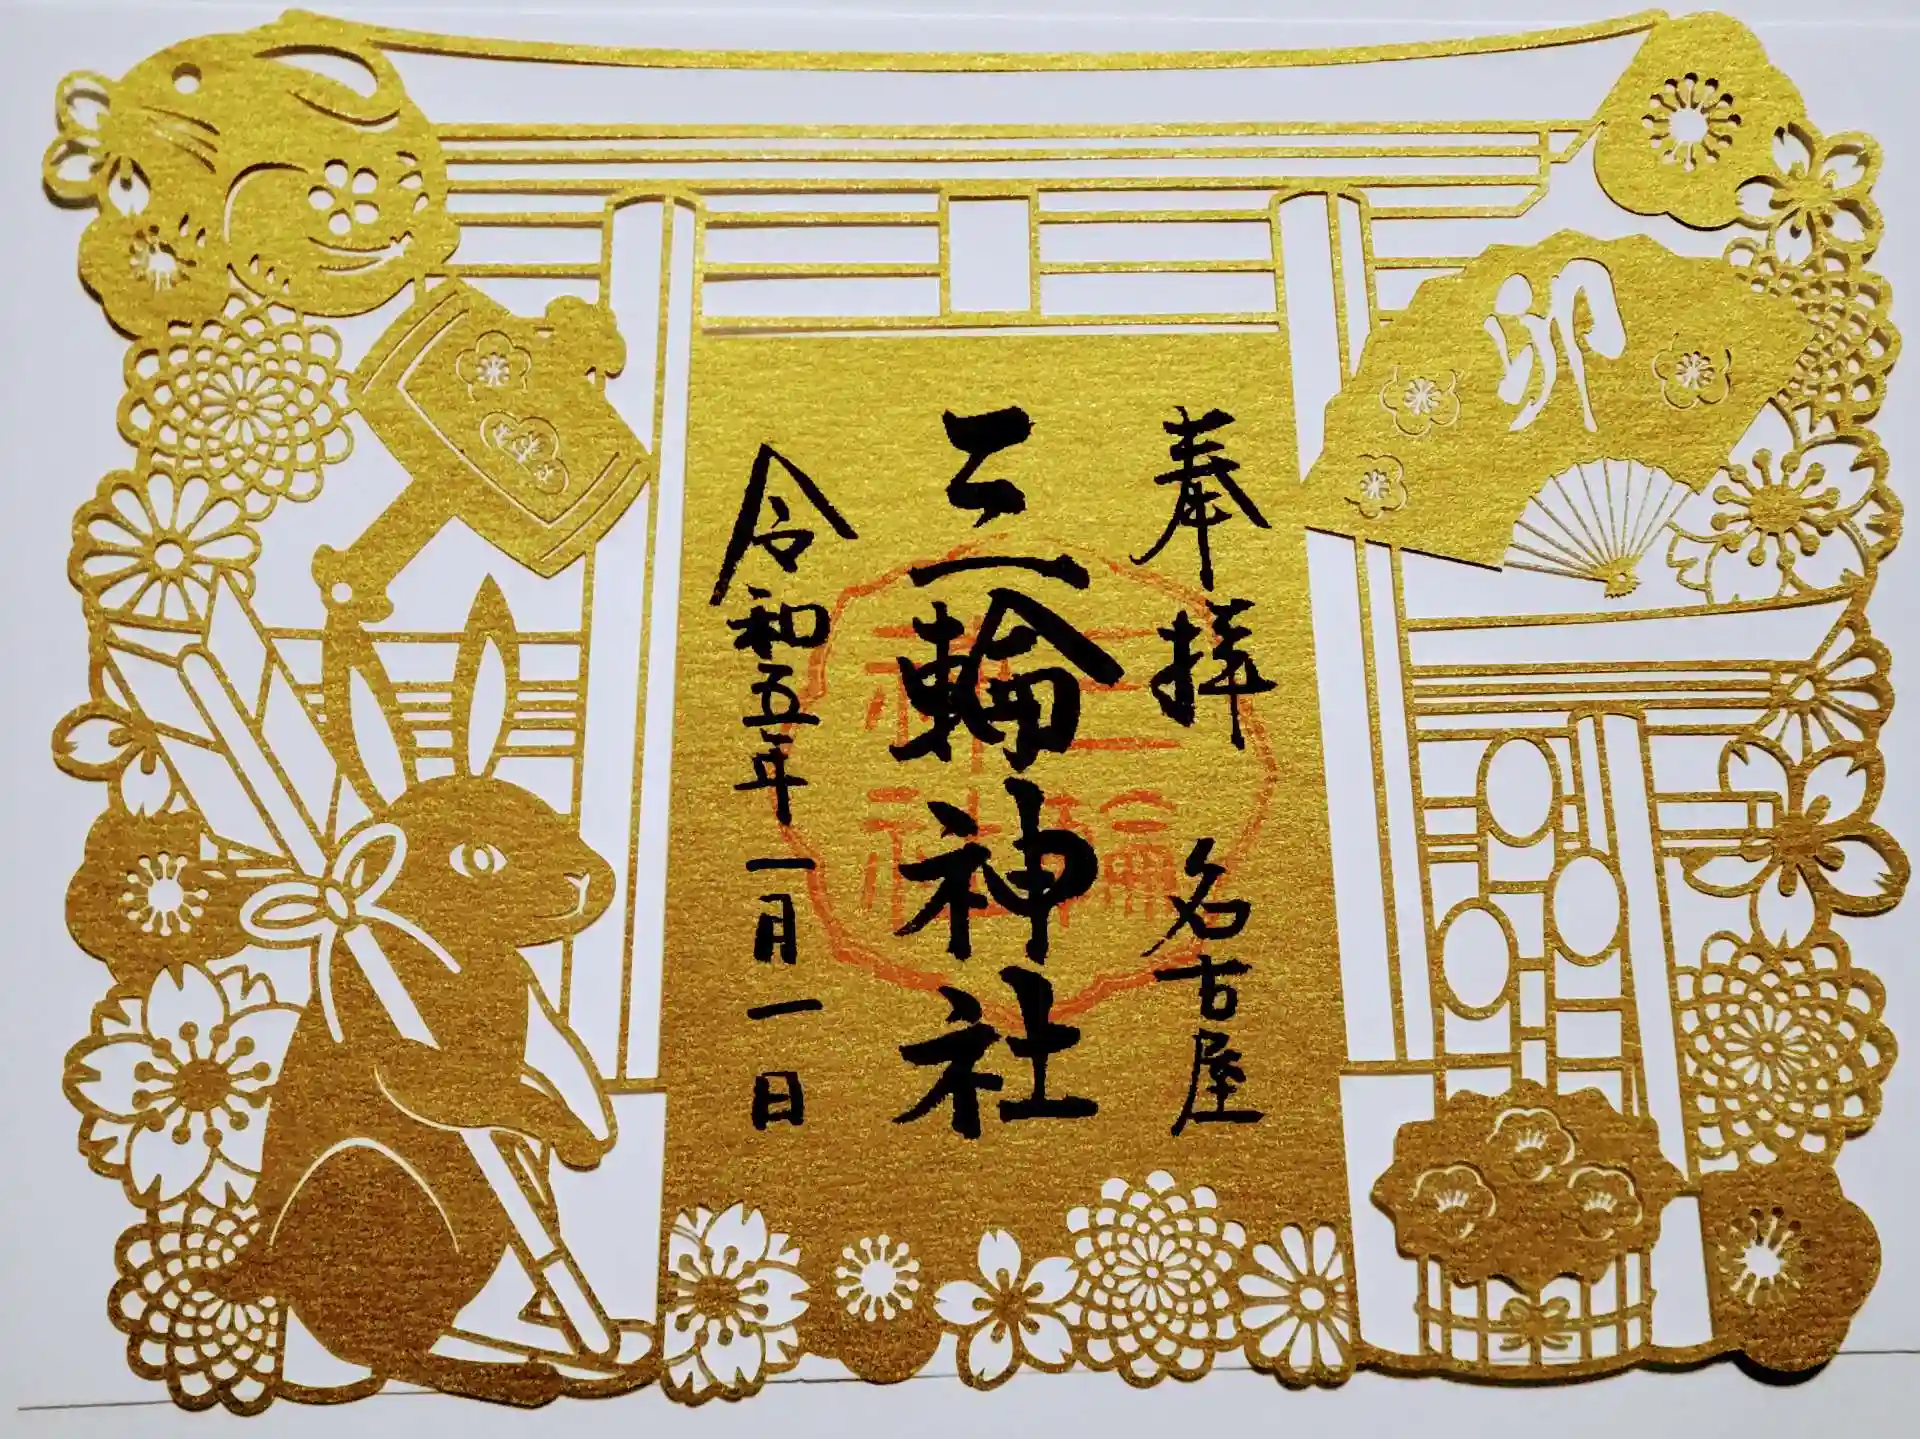 卯
奉拝 名古屋
三輪神社
令和五年一月一日
三輪
神社